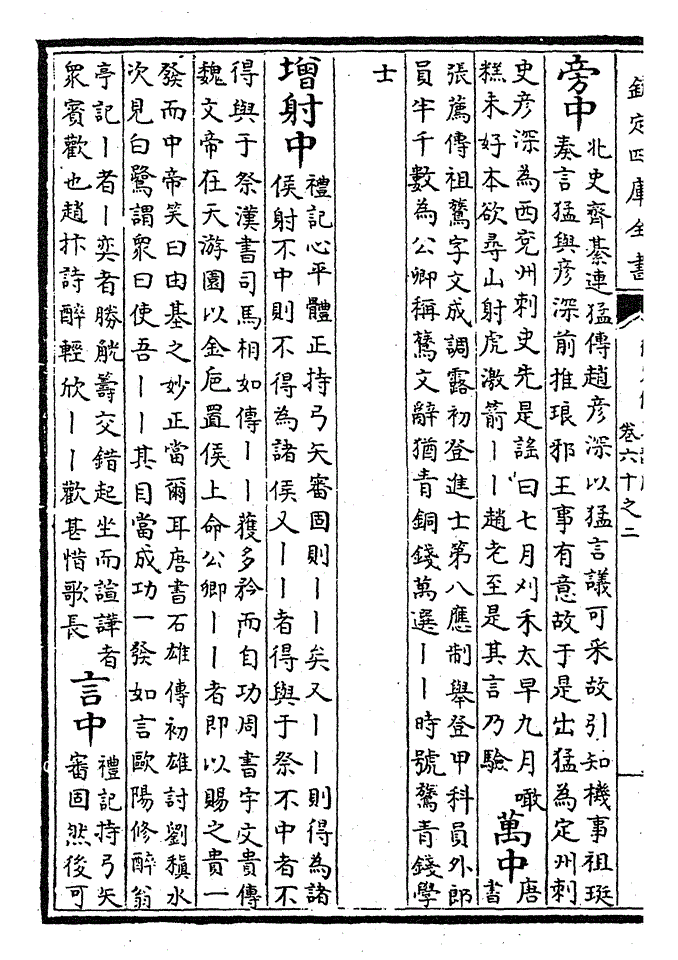 欽定四庫全書
卷六十之二
旁中
北史齊綦連猛傳趙彦深以猛言議可采故引知機事祖珽
奏言猛與彦深前推琅邪王事有意故于是出猛為定州刺
史彦深為西兖州刺史先是謡曰七月刈禾太早九月噉
糕未好本欲尋山射虎激箭丨丨趙老至是其言乃驗
萬中
唐
書
張薦傳祖鷟字文成調露初登進士第八應制舉登甲科員外郎
員半千數為公卿稱鷟文辭猶青銅錢萬選丨丨時號鷟青錢學
士
增射中
禮記心平體正持弓矢審固則丨丨矣又丨丨則得為諸
侯射不中則不得為諸侯又丨丨者得與于祭不中者不
得與于祭漢書司馬相如傳丨丨獲多矜而自功周書宇文貴傳
魏文帝在天游園以金巵置侯上命公卿丨丨者即以賜之貴一
發而中帝笑曰由基之妙正當爾耳唐書石雄傳初雄討劉稹水
次見白鷺謂衆曰使吾丨丨其目當成功一發如言歐陽修醉翁
亭記丨者丨奕者勝觥籌交錯起坐而諠譁者
衆賓歡也趙抃詩醉輕欣丨丨歡甚惜歌長
言中
禮記持弓矢
審固然後可